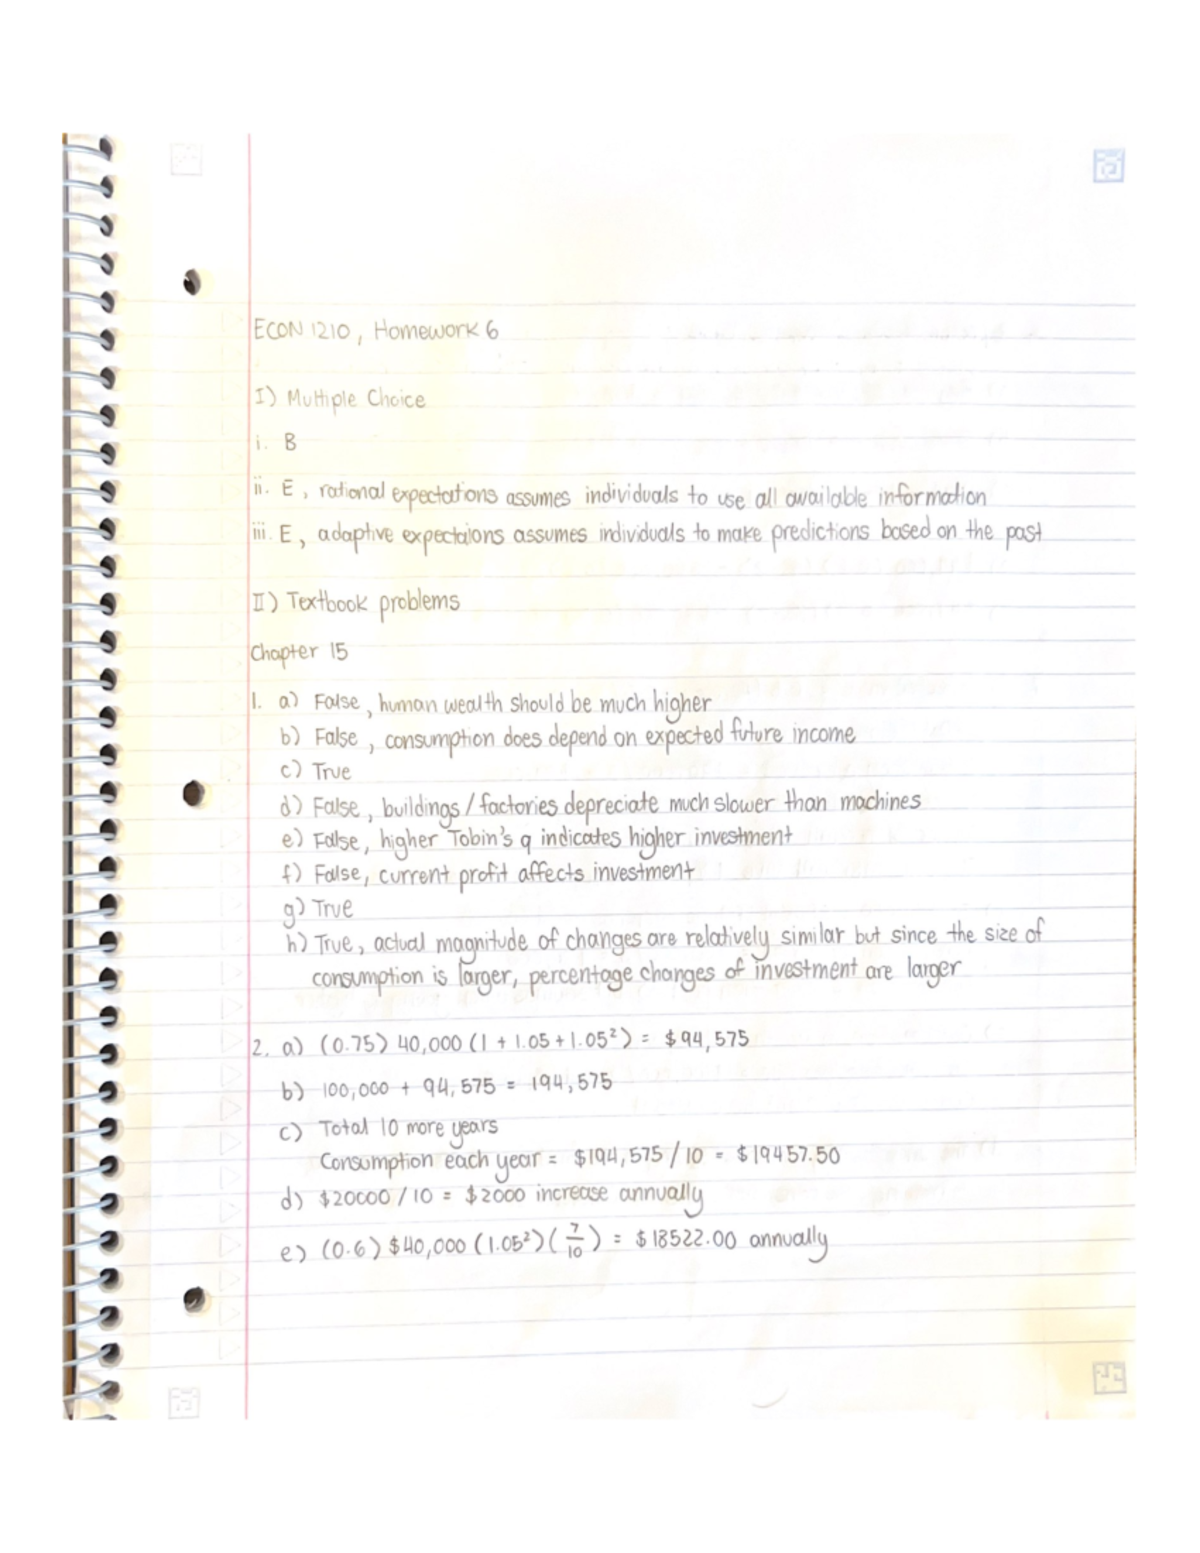 ECON 1210, Homework 6
I) Multiple Choice
i. B
ii. E, rational expectations assumes individuals to use all available information
iii. E, adaptive expectaions assumes individuals to make predictions based on the past
II) Textbook problems
Chapter 15
1. a) False, human wealth should be much higher
b) False, consumption does depend on expected future income
c) True
d) False, buildings/factories depreciate much slower than machines
e) False, higher Tobin's q indicates higher investment
f) False, current profit affects investment
g) True
h) True, actual magnitude of changes are relatively similar but since the size of
consumption is larger, percentage changes of investment are larger
2. a) (0.75) 40,000 (1 + 1.05 + 1.05²) = $94,575
b) 100,000 + 94,575 = 194,575
c) Total 10 more years
Consumption each year = $194,575 / 10 = $19457.50
d) $20000 / 10 = $2000 increase annually
e) (0.6) $40,000 (1.05²)(7/10) = $18522.00 annually